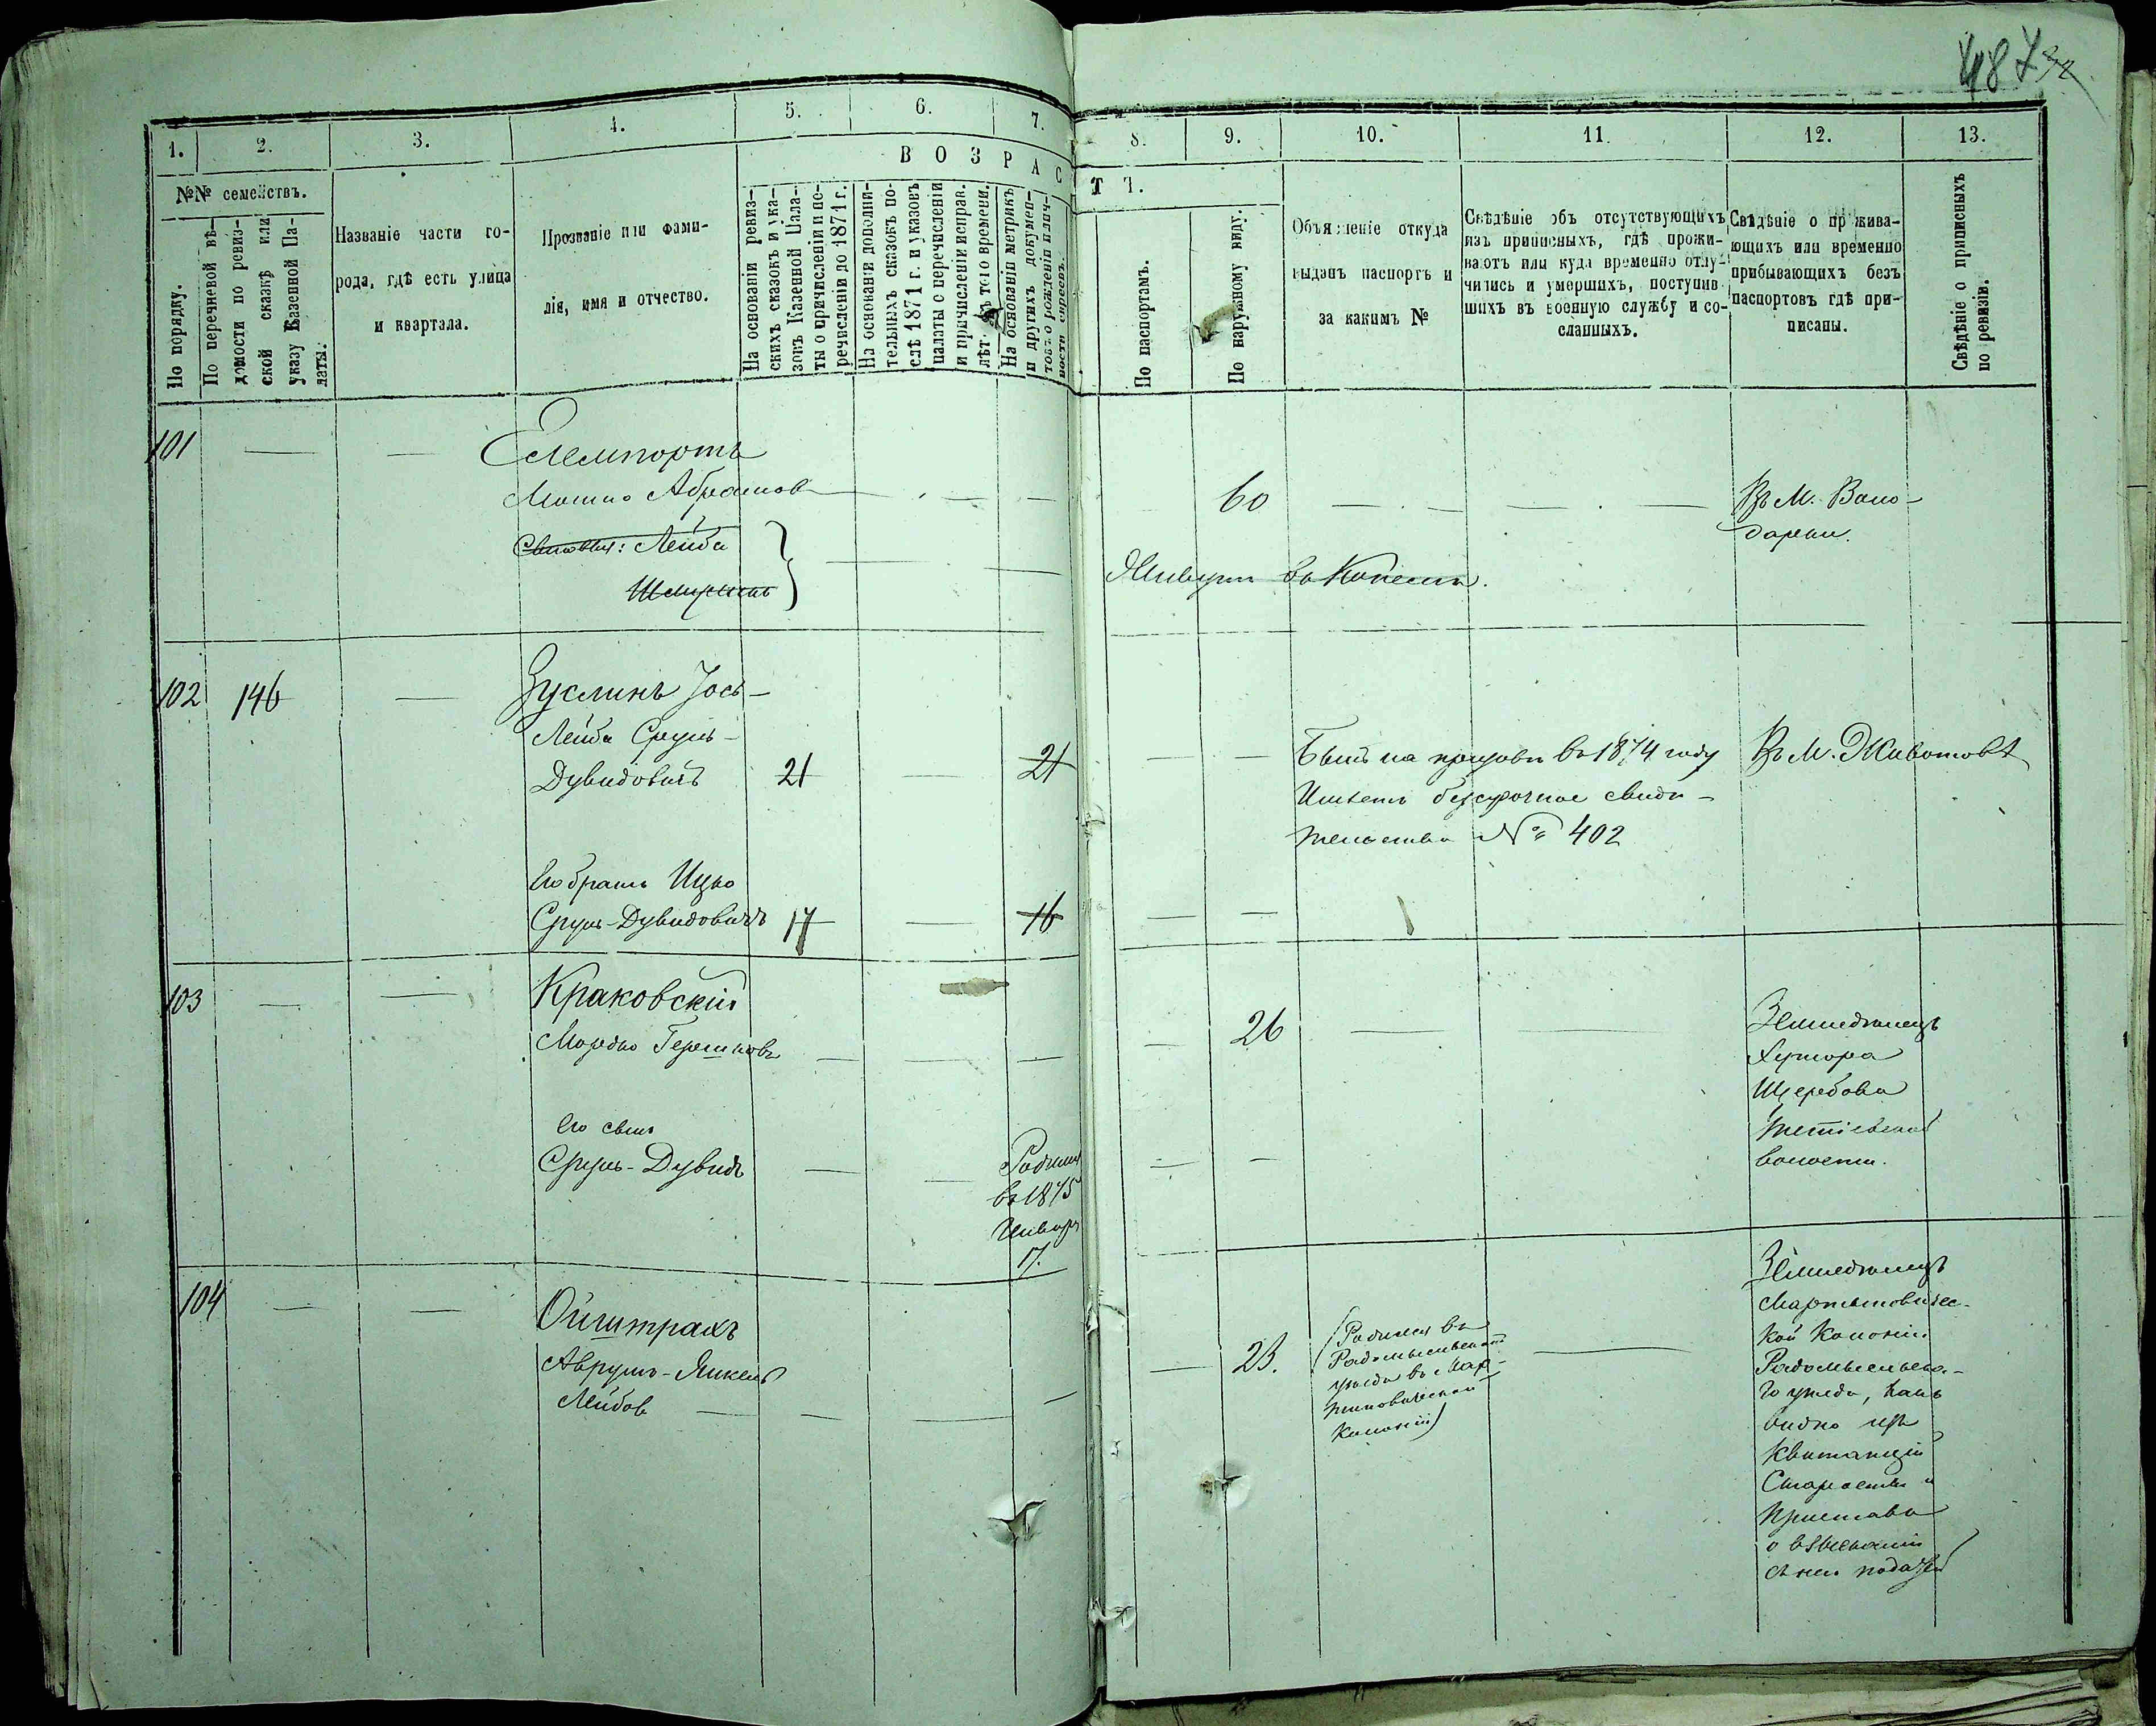 487
1.
2.
3.
4.
5.
6.
7.
8.
9.
10.
11.
12.
13.
№№ семействъ.
ВОЗРАС
ТЪ.
По порядку.
По перечневой вѣ-
домости по ревиз-
ской сказкѣ или
указу Казенной Па-
латы.
Названіе части го-
рода, гдѣ есть улица
и квартала.
Прозваніе или фами-
лія, имя и отчество.
На основаніи ревиз-
скихъ сказокъ и ука-
зовъ Казенной Пала-
ты о причисленіи и пе-
речисленіи до 1871 г.
На основаніи дополни-
тельныхъ сказокъ по-
слѣ 1871 г. и указовъ
палаты о перечисленіи
и причисленіи исправ.
лѣт. къ того времени.
На основаніи метрикъ
и другихъ докумен-
товъ о рожденіи
По паспортамъ.
По наружному виду.
Объясненіе откуда
выданъ паспортъ и
за какимъ №
Свѣдѣніе объ отсутствующихъ
изъ приписныхъ, гдѣ прожи-
ваютъ или куда временно отлу-
чились и умершихъ, поступив-
шихъ въ военную службу и со-
сланныхъ.
Свѣдѣніе о прожива-
ющихъ или временно
прибывающихъ безъ
паспортовъ гдѣ при-
писаны.
Свѣдѣніе о приписныхъ
по ревизіи.
101 — —
Мошко Абрамовъ — — —
60 — — Въ М. Воло-
дарки.
Сыновья: Лейба
Живутъ въ
102 146 — Зуслинъ Іось-
Лейба Сруль-
Дувидовичъ 21 — 21
— — Былъ на призывѣ въ 1874 году
Имѣетъ безсрочное свидѣ-
тельство № 402
Въ М. Животовѣ
Его братъ Ицко
Сруль-Дувидовичъ 17 — 16
— —
103 — — Краковскій
Мордко Гершковъ — — —
— 26 — — Земледѣлецъ
Хутора
Щербова
Тетіевской
волости.
Его сынъ
Сруль-Дувидъ — — Родился
въ 1875
Января
17.
— —
104 — — Ойштрахъ
Аврумъ-Янкель
Лейбовъ — — — —
— 23. (Родился въ
Радомысльскомъ
уѣздѣ въ Мар-
тиновичской
Колоніи)
— Земледѣлецъ
Мартыновичес-
кой Колоніи
Радомысльска-
го уѣзда, какъ
видно изъ
Квитанціи
Старосты и
Пристава
о взысканіи
съ него податей